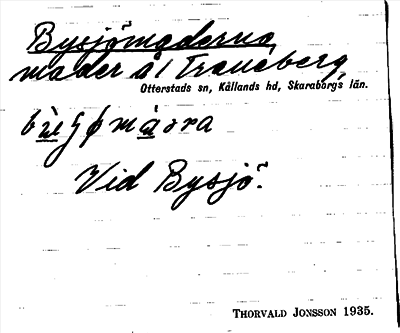 Bysjömaderna,
mader å 1 Traneberg,
Otterstads sn, Kållands hd, Skaraborgs län.
Vid Bysjö.
THORVALD JONSSON 1935.